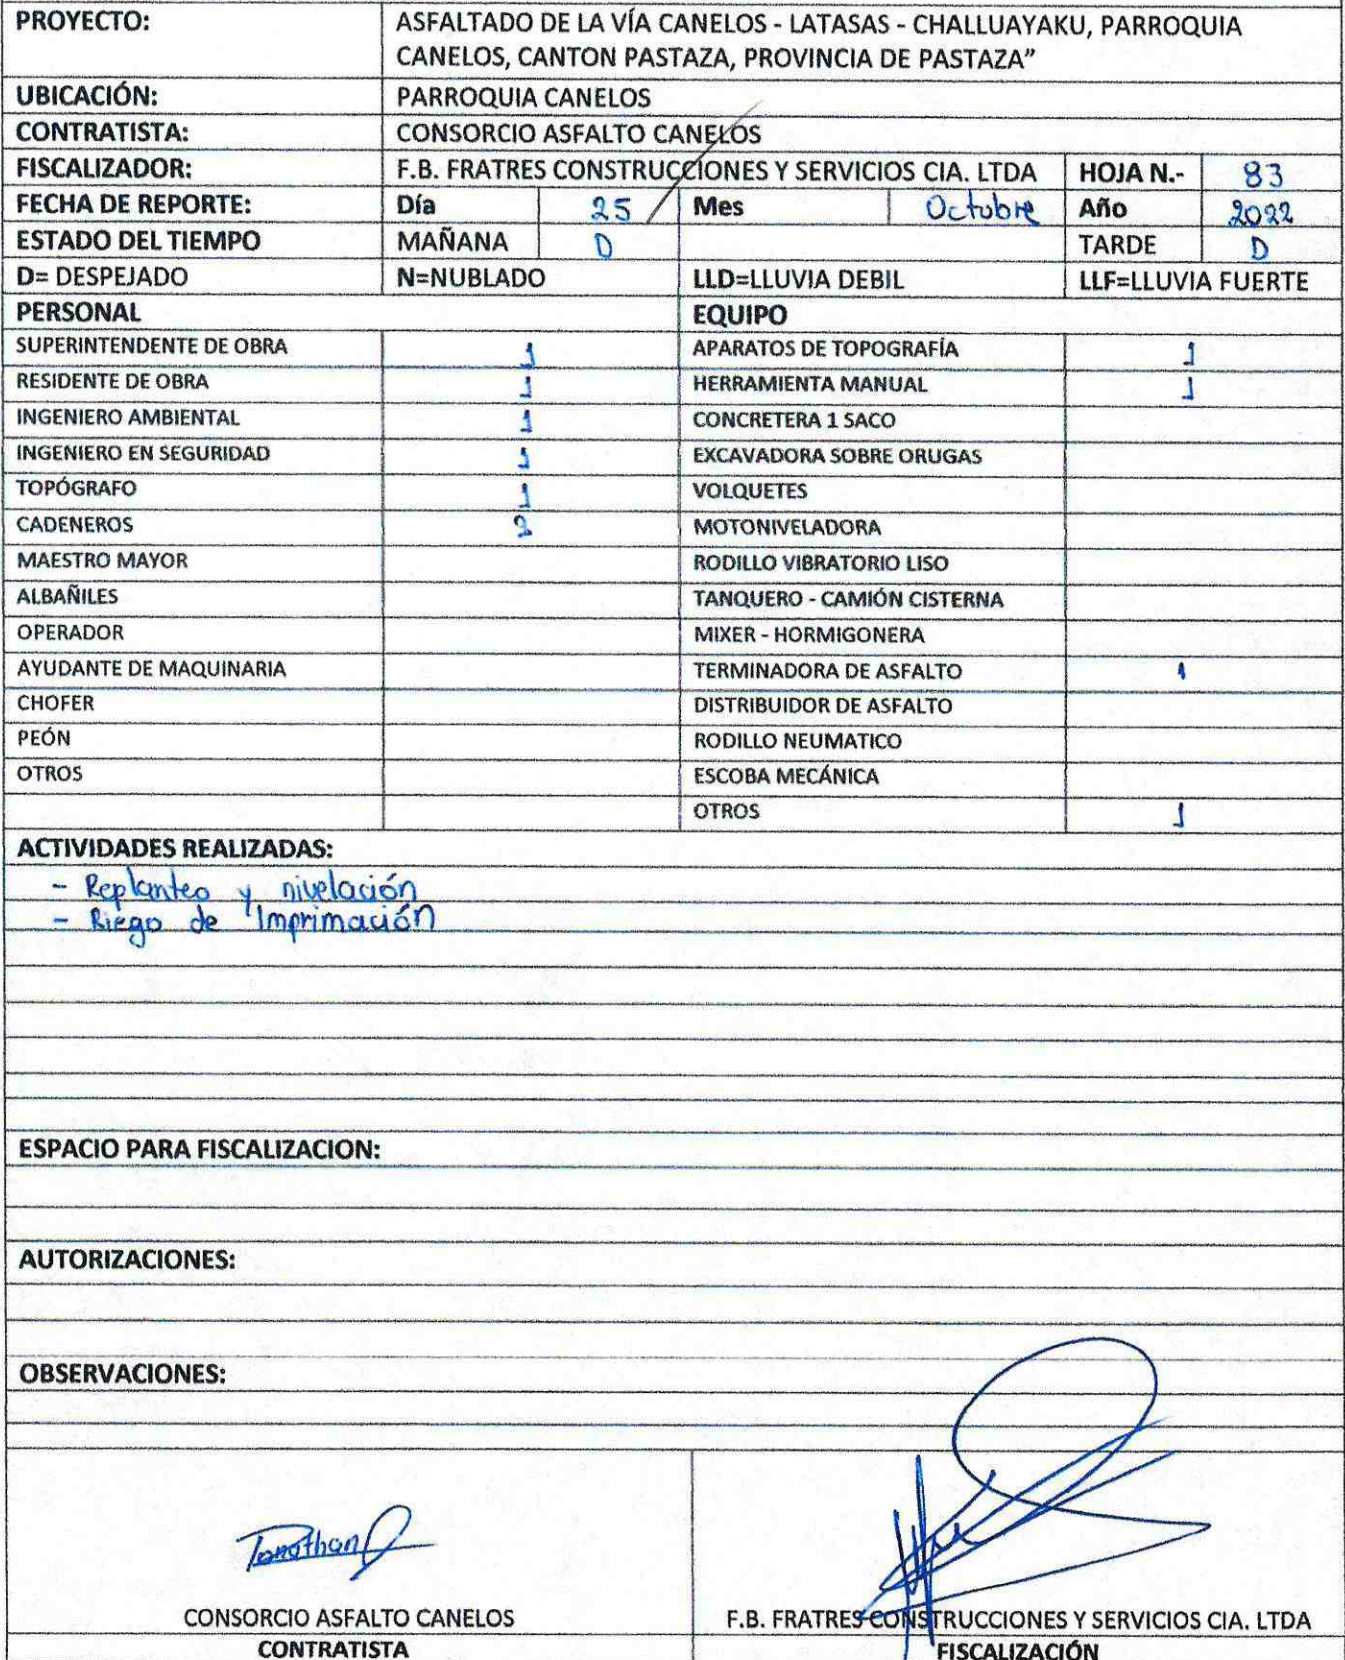 PROYECTO: ASFALTADO DE LA VÍA CANELOS - LATASAS - CHALLUAYAKU, PARROQUIA
CANELOS, CANTON PASTAZA, PROVINCIA DE PASTAZA”
UBICACIÓN: PARROQUIA CANELOS
CONTRATISTA: CONSORCIO ASFALTO CANELOS
FISCALIZADOR: F.B. FRATRES CONSTRUCCIONES Y SERVICIOS CIA. LTDA HOJA N.- 83
FECHA DE REPORTE: Día 25 Mes Octubre Año 2022
ESTADO DEL TIEMPO MAÑANA D TARDE D
D= DESPEJADO N=NUBLADO LLD=LLUVIA DEBIL LLF=LLUVIA FUERTE
PERSONAL EQUIPO
SUPERINTENDENTE DE OBRA 1 APARATOS DE TOPOGRAFÍA 1
RESIDENTE DE OBRA 1 HERRAMIENTA MANUAL 1
INGENIERO AMBIENTAL 1 CONCRETERA 1 SACO
INGENIERO EN SEGURIDAD 1 EXCAVADORA SOBRE ORUGAS
TOPÓGRAFO 1 VOLQUETES
CADENEROS 2 MOTONIVELADORA
MAESTRO MAYOR RODILLO VIBRATORIO LISO
ALBAÑILES TANQUERO - CAMIÓN CISTERNA
OPERADOR MIXER - HORMIGONERA
AYUDANTE DE MAQUINARIA TERMINADORA DE ASFALTO 1
CHOFER DISTRIBUIDOR DE ASFALTO
PEÓN RODILLO NEUMATICO
OTROS ESCOBA MECÁNICA
OTROS 1
ACTIVIDADES REALIZADAS:
- Replanteo y nivelación
- Riego de Imprimación
ESPACIO PARA FISCALIZACION:
AUTORIZACIONES:
OBSERVACIONES:
Jonathan
CONSORCIO ASFALTO CANELOS F.B. FRATRES CONSTRUCCIONES Y SERVICIOS CIA. LTDA
CONTRATISTA FISCALIZACIÓN